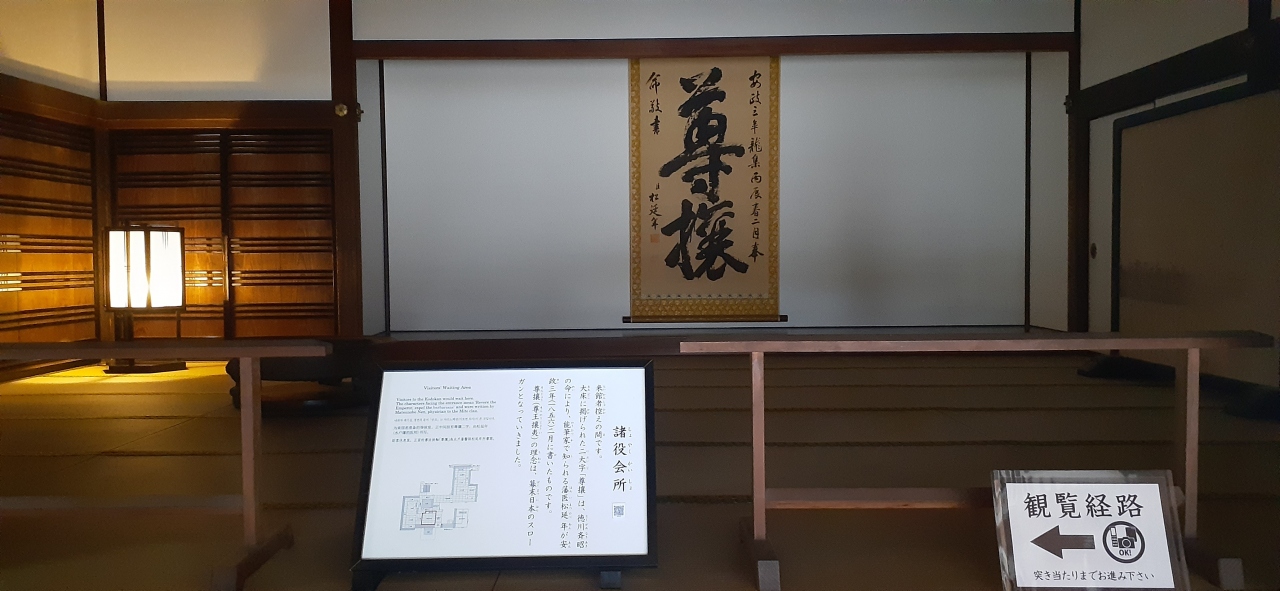 安政三年龍集丙辰春二月奉
尊攘
命敬書
臣松延年
諸役会所
来館者控えの間です。
大床に掲げられた二大字「尊攘」は、徳川斉昭
の命により、能筆家で知られる藩医松延年が安
政三年(一八五六)二月に書いたものです。
尊攘(尊王攘夷)の理念は、幕末日本のスロー
ガンとなっていきました。
Visitors' Waiting Area
Visitors to the Kodokan would wait here.
The characters facing the entrance mean 'Revere the
Emperor, expel the barbarians' and were written by
Matsunobe Nen, physician to the Mito clan.
観覧経路
OK!
突き当たりまでお進み下さい